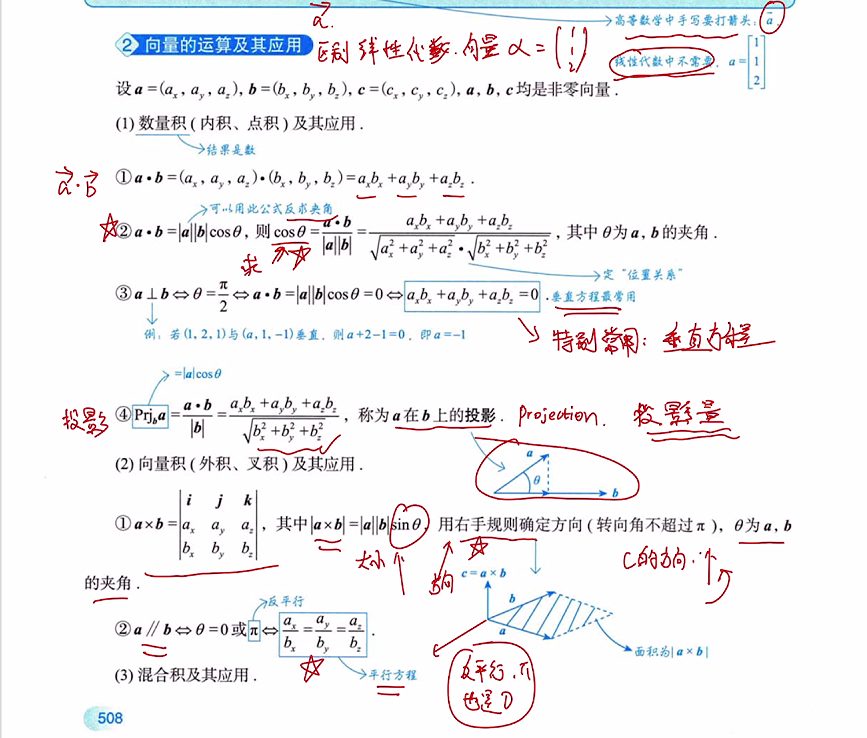 高等数学中手写要打箭头:a⃗
a⃗
2 向量的运算及其应用 区别 线性代数.向量 α = (1 1 2)
线性代数中不需要, a = [1 1 2]
设 a = (aₓ, a_y, a_z), b = (bₓ, b_y, b_z), c = (cₓ, c_y, c_z), a, b, c 均是非零向量.
(1) 数量积 ( 内积、点积 ) 及其应用.
结果是数
a⃗·b⃗ ① a•b = (aₓ, a_y, a_z)•(bₓ, b_y, b_z) = aₓbₓ + a_yb_y + a_zb_z.
可以用此公式反求夹角
☆② a•b = |a||b|cosθ, 则 cosθ = a•b/(|a||b|) = (aₓbₓ + a_yb_y + a_zb_z)/(√(aₓ² + a_y² + a_z²)•√(bₓ² + b_y² + b_z²)), 其中 θ 为 a, b 的夹角.
求 ☆
定“位置关系”
③ a⊥b ⇔ θ = π/2 ⇔ a•b = |a||b|cosθ = 0 ⇔ aₓbₓ + a_yb_y + a_zb_z = 0. 垂直方程最常用
例: 若(1, 2, 1)与(a, 1, -1)垂直, 则 a+2-1=0, 即 a=-1
特别常用: 垂直方程
=|a|cosθ
投影 ④ Prj_b a = a•b/|b| = (aₓbₓ + a_yb_y + a_zb_z)/√(bₓ² + b_y² + b_z²), 称为 a 在 b 上的投影. projection. 投影量
(2) 向量积 ( 外积、叉积 ) 及其应用.
a
θ
b
① a×b = |i j k; aₓ a_y a_z; bₓ b_y b_z|, 其中 |a×b| = |a||b|sinθ, 用右手规则确定方向 ( 转向角不超过 π ), θ 为 a, b
大小 ↑ 方向 ☆ C的方向.
的夹角.
c = a×b
b
a
面积为|a×b|
反平行
② a∥b ⇔ θ = 0 或 π ⇔ aₓ/bₓ = a_y/b_y = a_z/b_z.
☆ 平行方程
反平行, π
也是0
(3) 混合积及其应用.
508